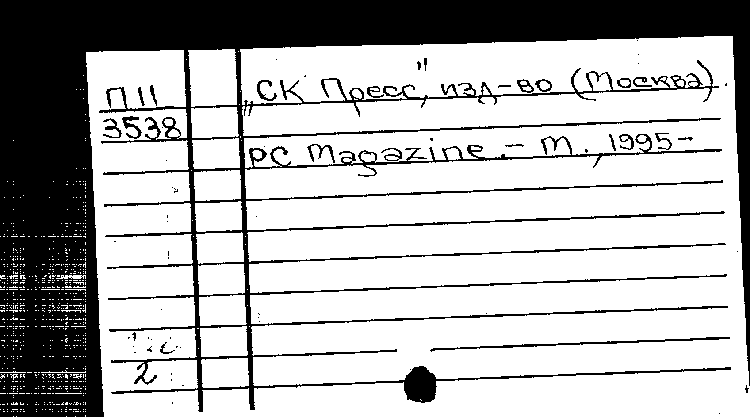 П11
3538
„СК Пресс", изд-во (Москва)
PC Magazine. - М., 1995-
2